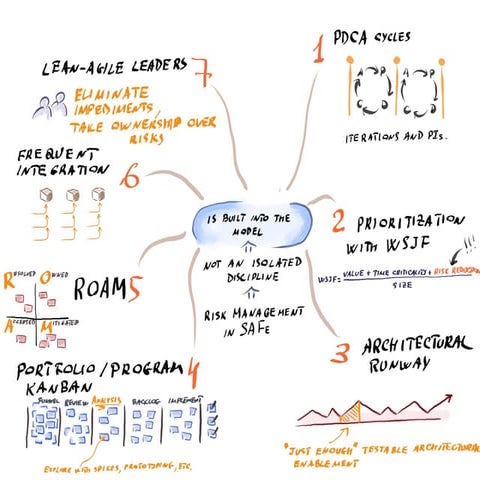 1 PDCA CYCLES
A P A P
C D C D
ITERATIONS AND PIs.
2 PRIORITIZATION
WITH WSJF
!!!
WSJF = VALUE + TIME CRITICALITY + RISK REDUCTION
SIZE
3 ARCHITECTURAL
RUNWAY
"JUST ENOUGH" TESTABLE ARCHITECTURAL
ENABLEMENT
4 PORTFOLIO/PROGRAM
KANBAN
FUNNEL REVIEW ANALYSIS BACKLOG IMPLEMENT
EXPLORE WITH SPIKES, PROTOTYPING, ETC.
ROAM 5
RESOLVED OWNED
ACCEPTED MITIGATED
FREQUENT
INTEGRATION 6
LEAN-AGILE LEADERS 7
ELIMINATE
IMPEDIMENTS,
TAKE OWNERSHIP OVER
RISKS
IS BUILT INTO THE
MODEL
NOT AN ISOLATED
DISCIPLINE
RISK MANAGEMENT
IN SAFe